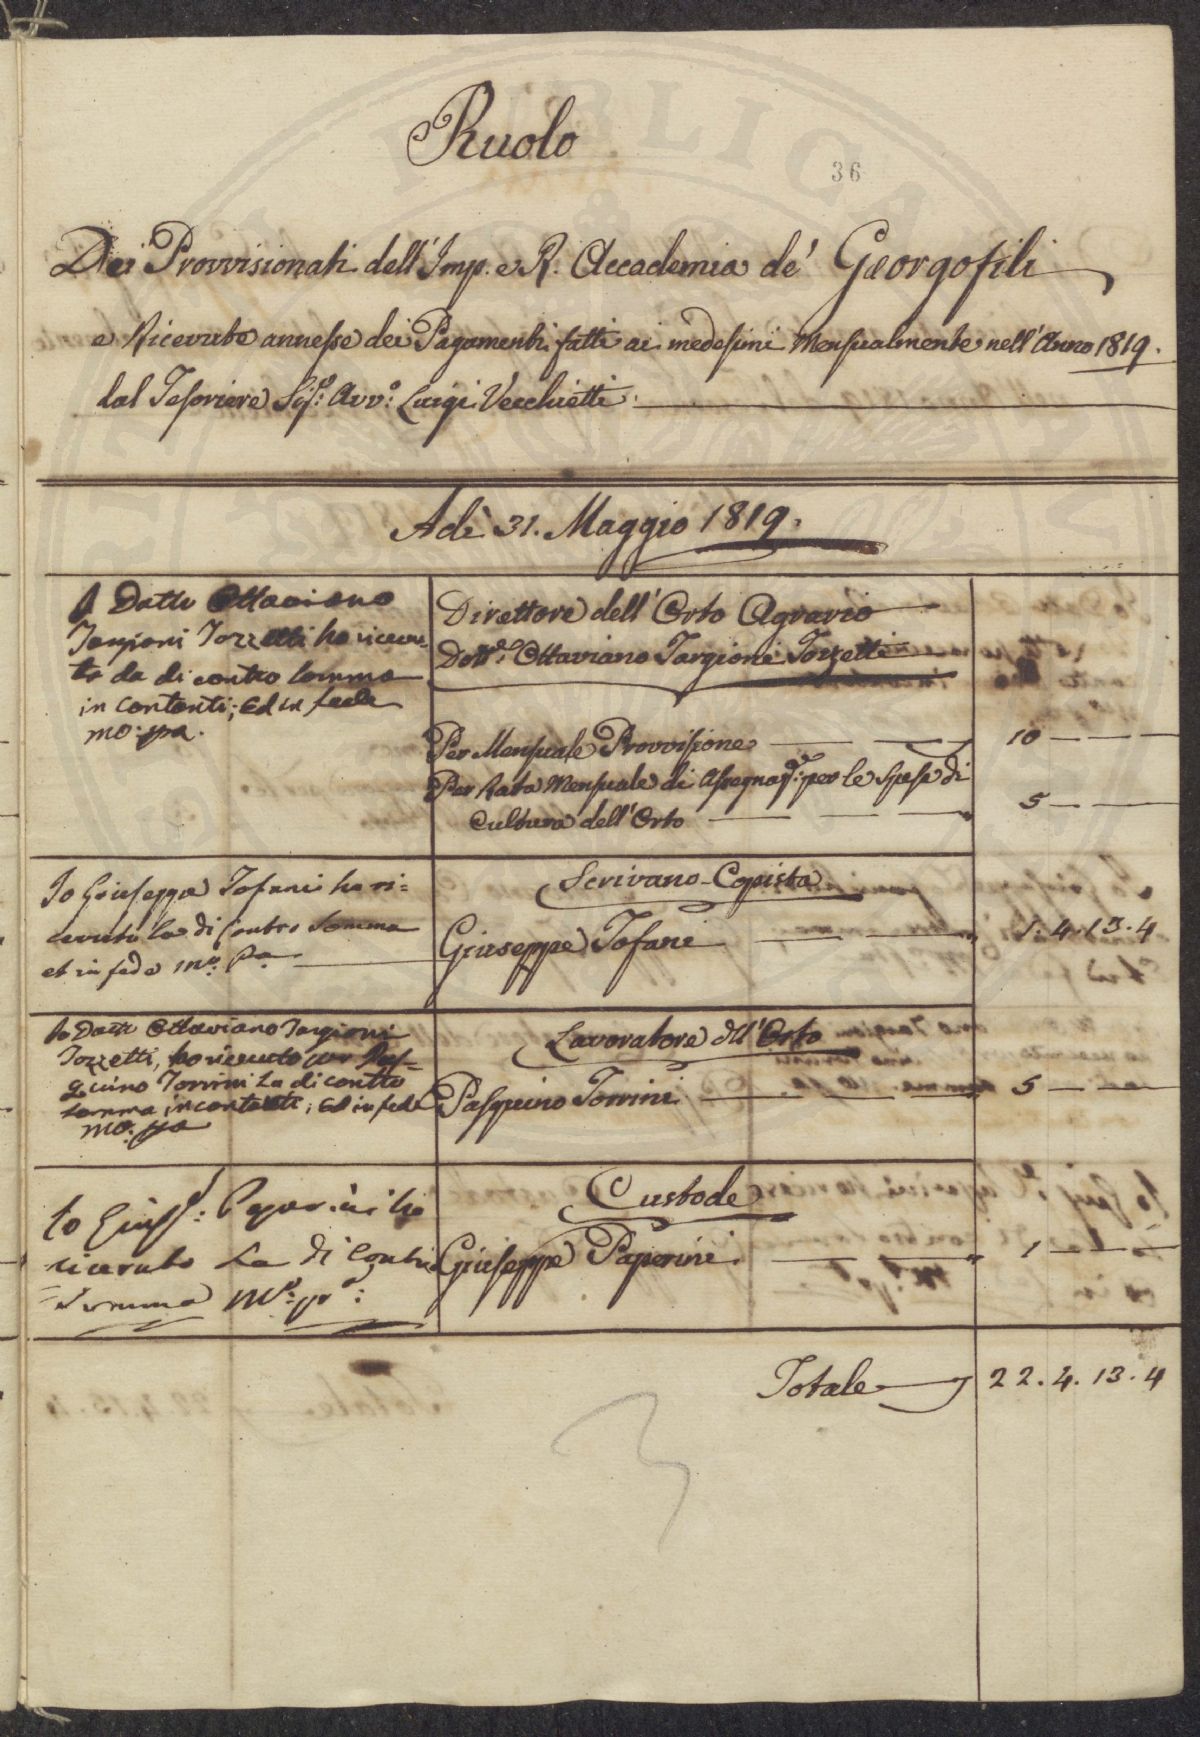 Ruolo
36
Dei Provvisionati dell'Imp. e R. Accademia de' Georgofili
e Ricevute annesse dei Pagamenti fatti ai medesimi Mensualmente nell'Anno 1819.
dal Tesoriere Sigr. Avvo. Luigi Vecchietti.
Adì 31. Maggio 1819.
Io Dattr Ottaviano
Targioni Tozzetti ho ricevu-
to da di contro somma
in contanti; ed in fede
mo: pa.
Direttore dell'Orto Agrario
Dottr. Ottaviano Targioni Tozzetti
Per Mensuale Provvisione 10
Per Rata Mensuale di Assegna per le Spese di
Cultura dell'Orto 5
Io Giuseppe Tofani ho ri=
cevuto la di contro somma
et in fede mo. pa.
Scrivano-Copista
Giuseppe Tofani 1.4.13.4
Io Dattr Ottaviano Targioni
Tozzetti, ho ricevuto per Pas-
quino Torrini la di contro
somma in contanti; ed in fede
mo. pa
Lavoratore dll'Orto
Pasquino Torrini 5
Io Giusp.: Paperini ho
ricevuto La di Contro
Somma Mo: pa:
Custode
Giuseppe Paperini. 1
Totale 22.4.13.4
3